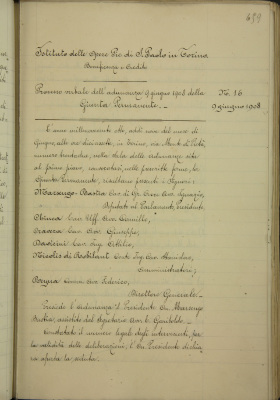 Istituto delle Opere Pie di S. Paolo in Torino
Beneficenza e Credito
Processo verbale dell'adunanza 9 giugno 1908 della
Giunta Permanente.
N. 16
9 giugno 1908
L'anno millenovecento otto, addì nove del mese di
giugno, alle ore diciassette, in Torino, via Monte di Pietà,
numero trentadue, nella sala delle adunanze sita
al primo piano, convocatasi, nelle prescritte forme, la
Giunta Permanente, risultano presenti i Signori:
Marsengo-Bastia Cav. di Gr. Croce Avv. Ignazio,
Deputato al Parlamento, Presidente
Comm. Avv. Camillo,
Cav. Avv. Giuseppe,
Cav. Ing. Attilio,
Nicolis di Robilant Conte Ing. Stanislao,
Amministratori;
Comm. Avv. Federico,
Direttore Generale.
Presiede l'adunanza il Presidente On. Marsengo
Bastia, assistito dal Segretario Avv. C. Garibaldi.
Constatato il numero legale degli intervenuti per
la validità delle deliberazioni, l'On. Presidente dichiara
aperta la seduta.